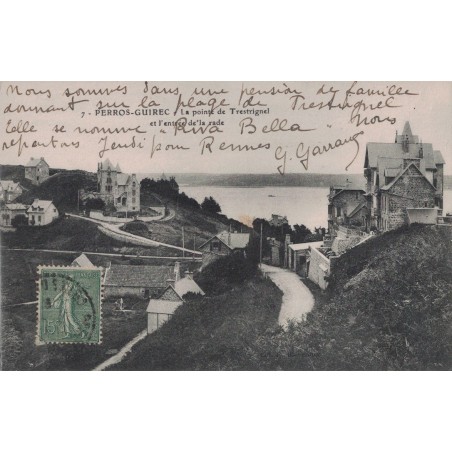 Nous sommes dans une pension de famille
donnant sur la plage de Trestrignel
7. - PERROS-GUIREC - La pointe de Trestrignel
et l'entrée de la rade
Elle se nomme "Riva Bella". Nous
repartons Jeudi pour Rennes
G. Garraux
15